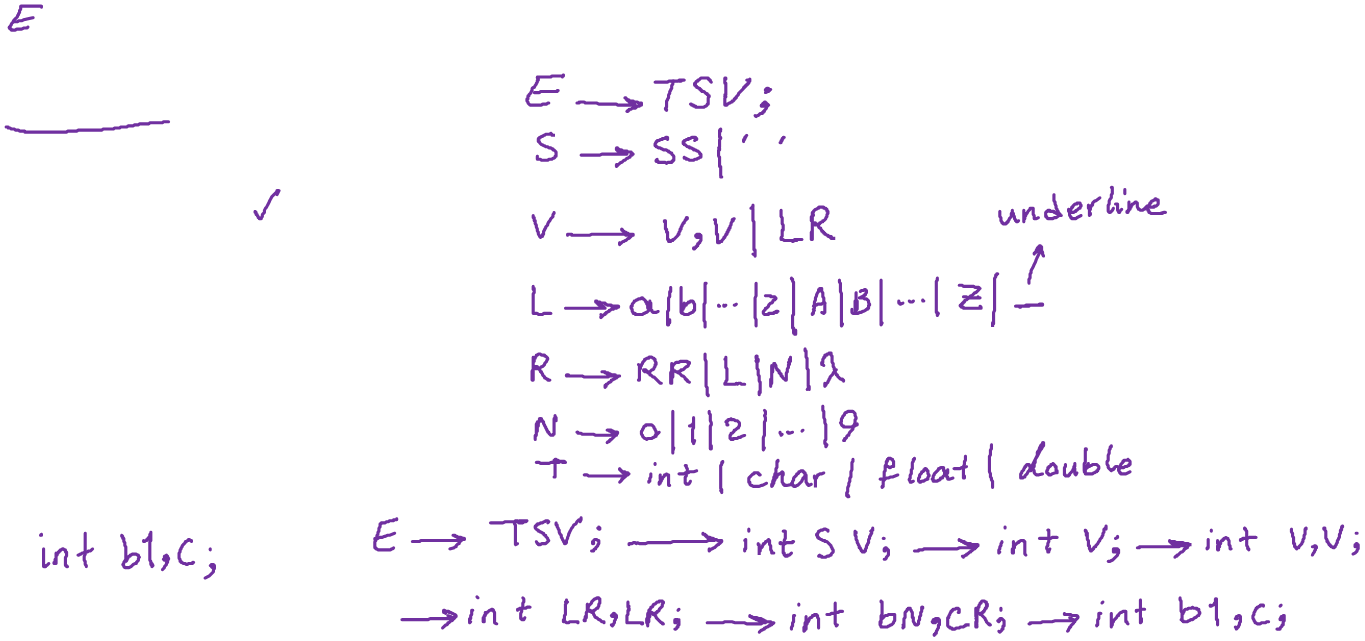 E
E → TSV;
S → SS|' '
✓
underline
V → V,V | LR
L → a|b|...|z|A|B|...|Z|_
R → RR|L|N|λ
N → 0|1|2|...|9
T → int | char | float | double
int b1,C;
E → TSV; → int S V; → int V; → int V,V;
→ int LR,LR; → int bN,CR; → int b1,C;